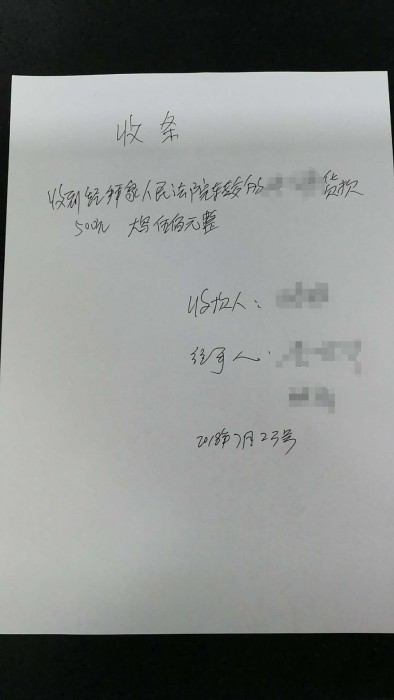 收条
收到经拜泉人民法院转交的 货款
500元 大写伍佰元整
收款人：
经手人：
2018年7月23号